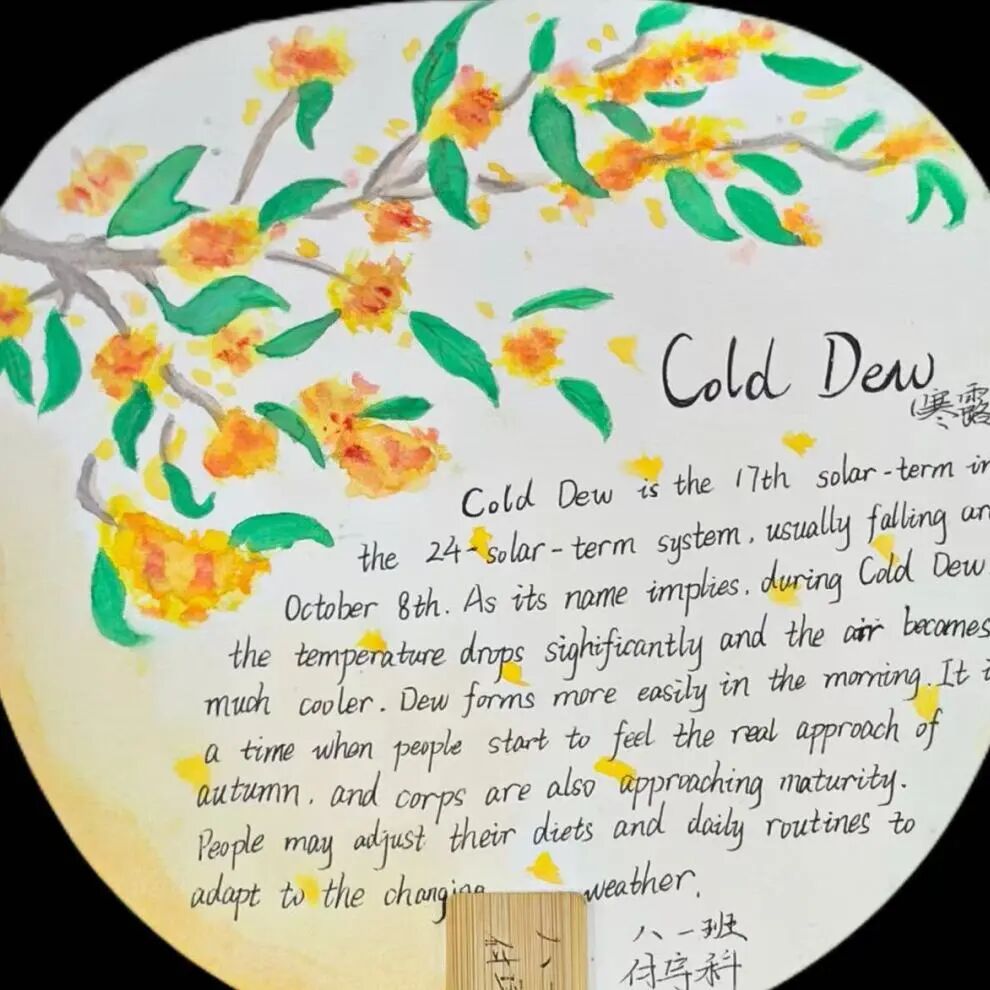 Cold Dew
寒露
Cold Dew is the 17th solar-term in
the 24-solar-term system, usually falling
October 8th. As its name implies, during Cold Dew
the temperature drops sighificantly and the air becomes
much cooler. Dew forms more easily in the morning. It
a time when people start to feel the real approach of
autumn, and corps are also approaching maturity.
People may adjust their diets and daily routines to
adapt to the changing weather.
八一班